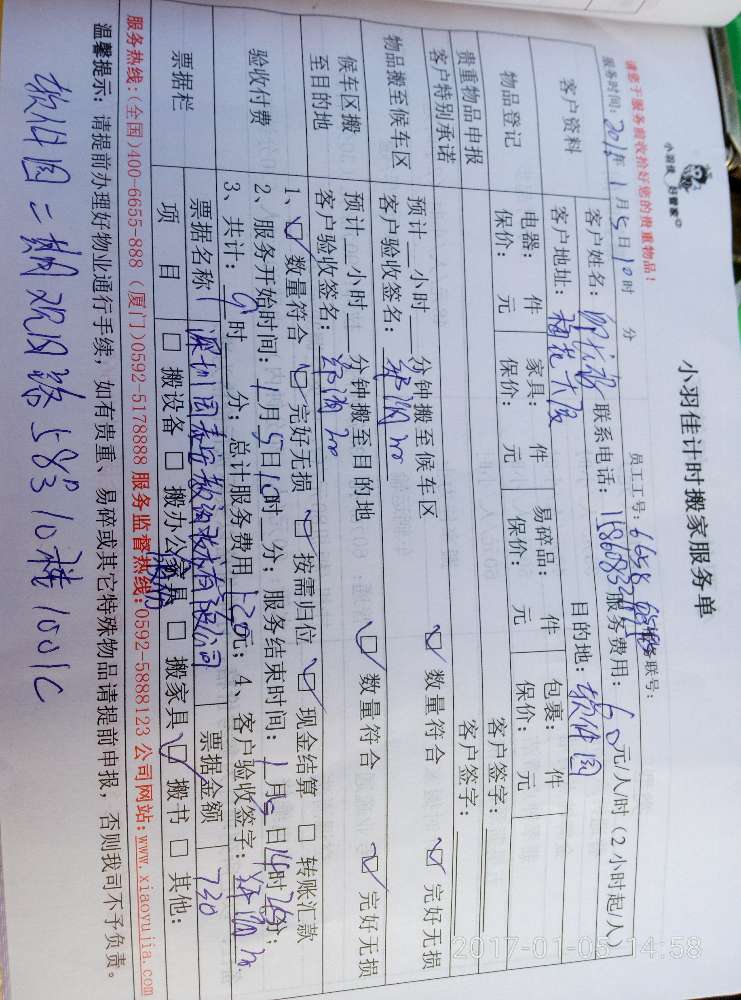 小羽佳 好管家
小羽佳计时搬家服务单
请您于服务前收拾好您的贵重物品!
员工工号: 6658 备联号:
服务时间: 年1月5日10时 分
服务费用: 60元/人/时(2小时起/人)
客户资料
客户姓名: 联系电话:
客户地址: 目的地: 软件园
物品登记
电器: 件 家具: 件 易碎品: 件 包裹: 件
保价: 元 保价: 元 保价: 元 保价: 元
贵重物品申报 客户签字:
客户特别承诺 客户签字:
物品搬至候车区
预计__小时__分钟搬至候车区 ☑ 数量符合 ☑ 完好无损
客户验收签名:
候车区搬至目的地
预计__小时__分钟搬至目的地 ☑ 数量符合 ☑ 完好无损
客户验收签名:
验收付费
1、☑ 数量符合 ☑ 完好无损 ☑ 按需归位 ☑ 现金结算 ☐ 转账汇款
2、服务开始时间: 1月5日10时__分; 服务结束时间: 1月5日14时 分;
3、共计: 9时__分; 总计服务费用 元; 4、客户验收签字:
票据栏
票据名称 票据金额 730
项 目 ☐ 搬设备 ☐ 搬办公家具 ☐ 搬家具 ☑ 搬书 ☐ 其他:
服务热线:(全国)400-6655-888 (厦门)0592-5178888 服务监督热线:0592-5888123 公司网站:www.xiaoyujia.com
温馨提示: 请提前办理好物业通行手续, 如有贵重、易碎或其它特殊物品请提前申报, 否则我司不予负责。
软件园二期观日路58号10楼1001C
2017-01-05 14:58